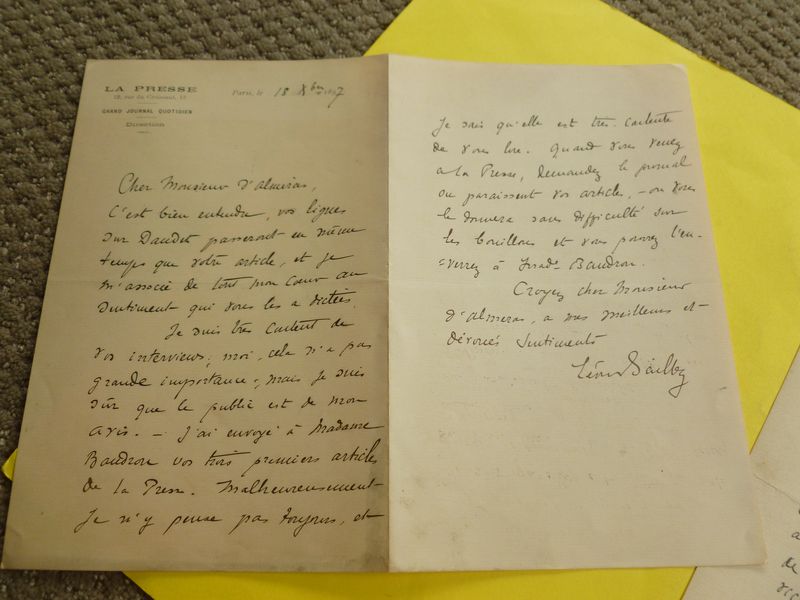 LA PRESSE
12, rue du Croissant, 12
GRAND JOURNAL QUOTIDIEN
Direction
Paris, le 15 Xbre 1897
Cher Monsieur d'Almeras,
C'est bien entendu, vos lignes
sur Daudet passeront en même
temps que votre article, et je
m'associe de tout mon cœur au
sentiment qui vous les a dictées.
Je suis très content de
vos interviews; moi, cela n'a pas
grande importance, mais je suis
sûr que le public est de mon
avis. — J'ai envoyé à Madame
Baudron vos trois premiers articles
de la Presse. Malheureusement
je n'y pense pas toujours, et
Je sais qu'elle est très contente
de vous lire. Quand vous venez
a la Presse, demandez le journal
ou paraissent vos article, - on vous
le donnera sans difficulté sur
les bouillons et vous pourrez l'en-
verrez à Madᵉ Baudron.
Croyez cher Monsieur
d'Almeras, a mes meilleurs et
dévoués sentiments
Léon Bailby
de